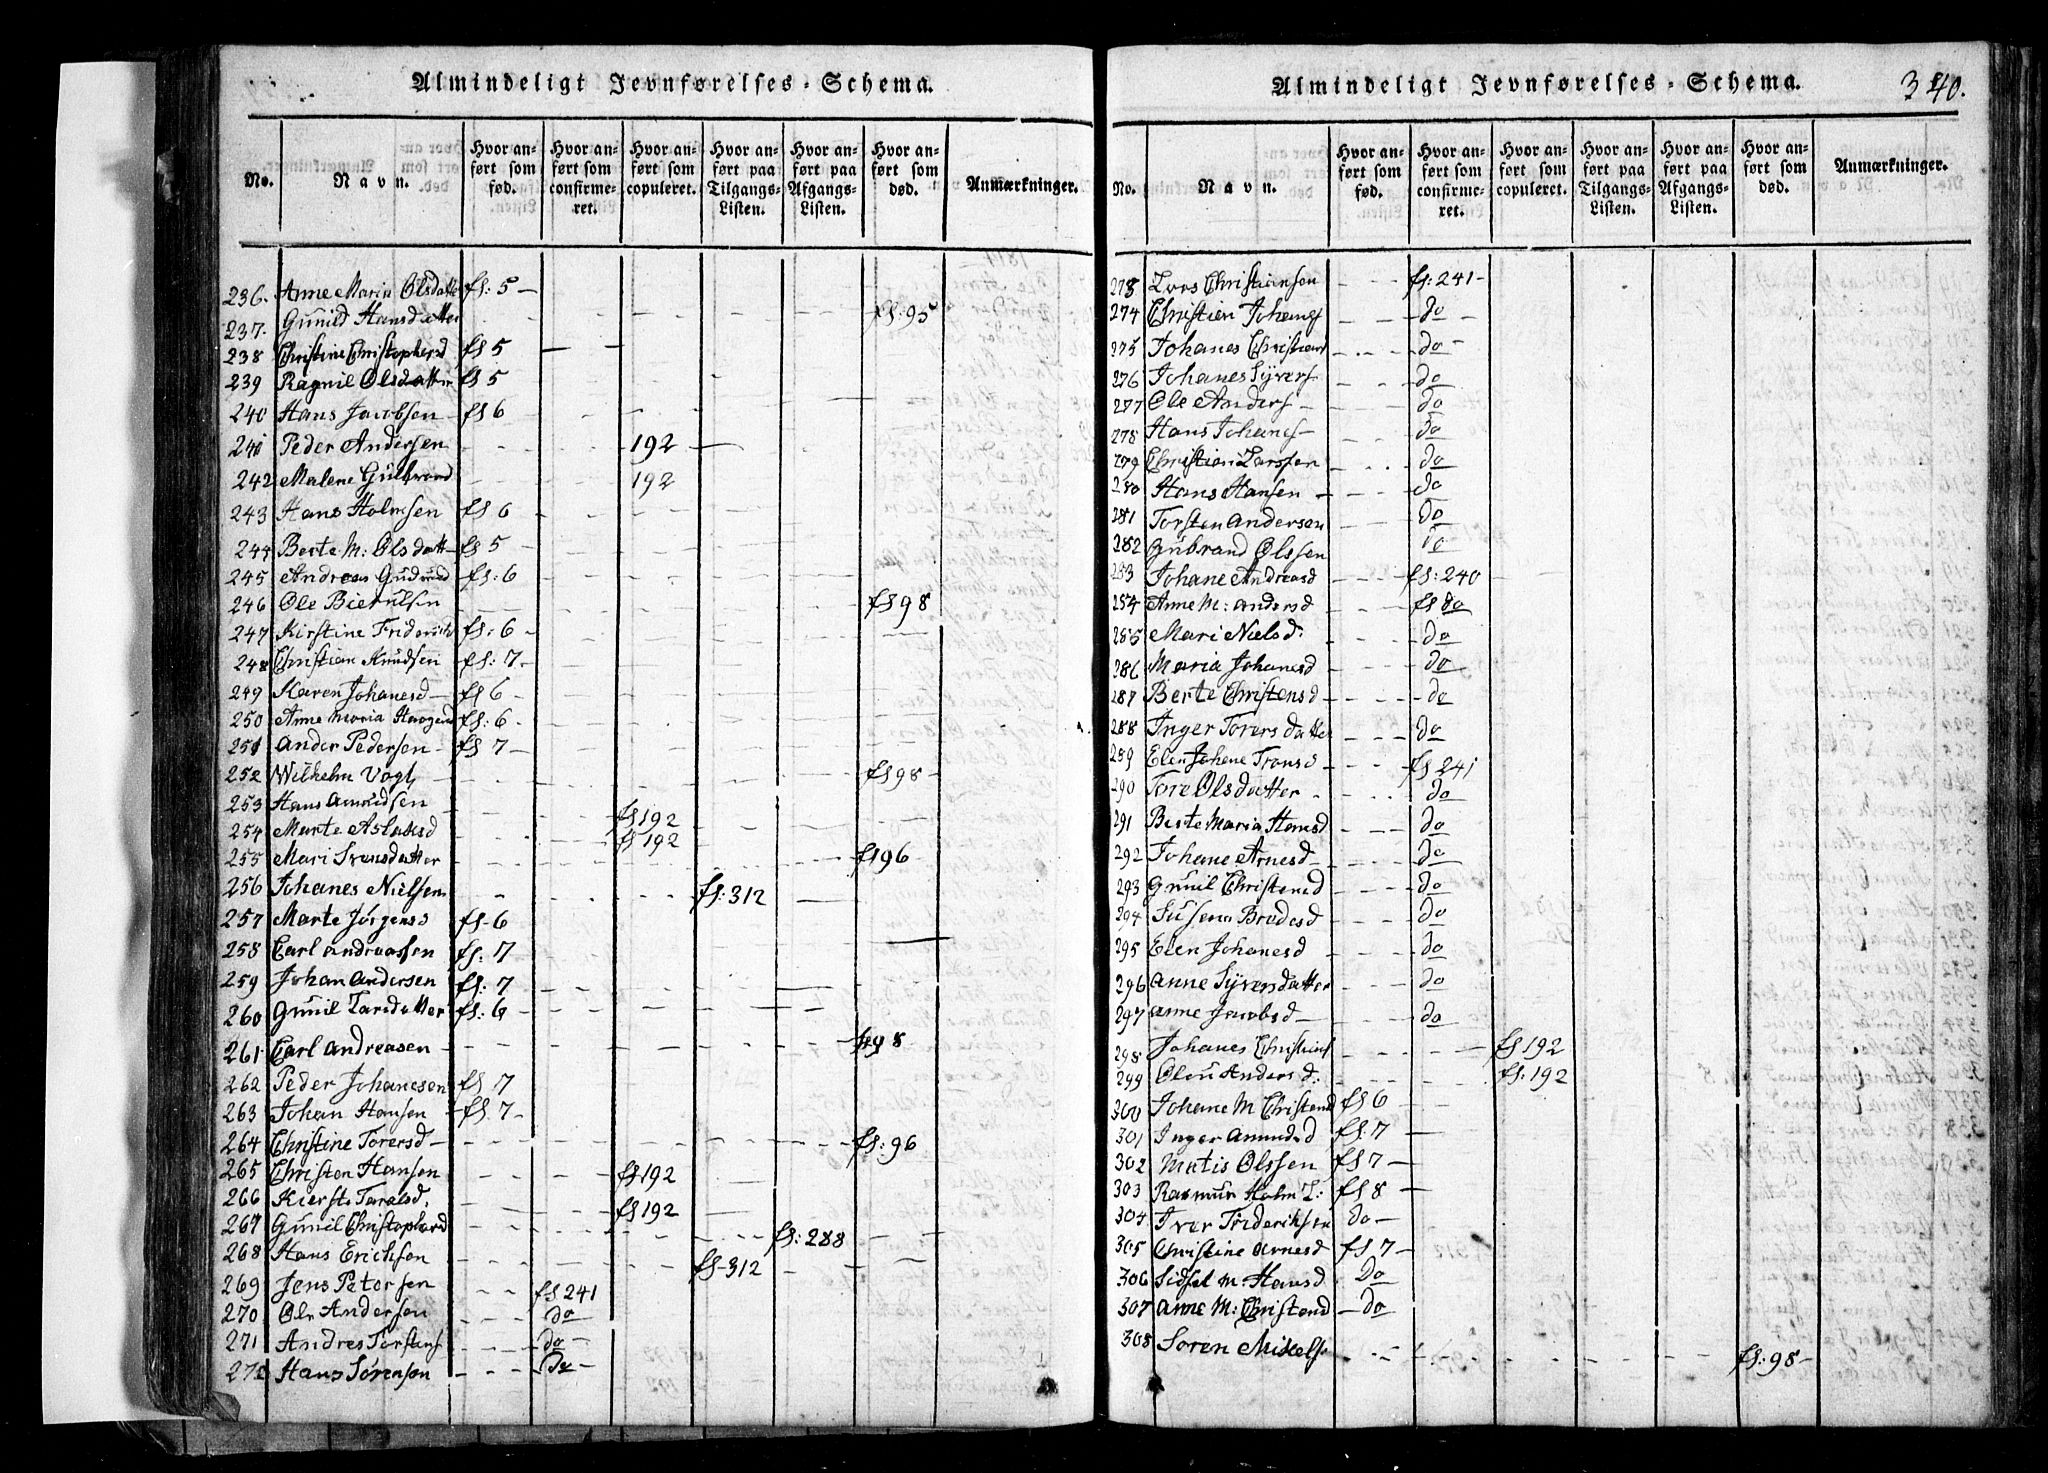 Almindeligt Jevnførelses-Schema.
No.
Navn.
Hvor anført som fød.
Hvor anført som confirmeret.
Hvor anført som copuleret.
Hvor anført paa Tilgangs-Listen.
Hvor anført paa Afgangs-Listen.
Hvor anført som død.
Anmærkninger.
236. Anne Maria Olsdatte fs: 5 –
237. Gunild Hansdatter fs: 95
238 Christine Christophersd fs 5
239 Ragnil Olsdatter fs 5
240 Hans Jacobsen fs 6
241 Peder Andersen 192
242 Malene Gulbrand 192
243 Hans Holmsen fs 6
244 Berte M: Olsdatt fs 5
245 Andreas Gudmd fs: 6
246 Ole Bierulsen fs 98
247 Kirstine Friderich fs: 6
248 Christian Knudsen fs: 7
249 Karen Johanesd fs 6
250 Anne Maria Haagend fs: 6
251 Ander Pedersen fs 7
252 Wilhelm Vogt fs 98
253 Hans Amundsen fs 192
254 Marte Aslaksd fs 192
255 Mari Svensdatter fs 96
256 Johanes Nielsen fs: 312
257 Marte Jørgensd fs 6
258 Carl Andreassen fs: 7
259 Johan Andersen fs: 7
260 Gunil Larsdatter fs: 6
261 Carl Andreasen 98
262 Peder Johanesen fs 7
263 Johan Hansen fs: 7
264 Christine Torersd fs: 96
265 Christen Hansen fs 192
266 Kierste Taralsd. fs 192
267 Gunil Christophersd fs: 288
268 Hans Erichsen fs 312
269 Jens Petersen fs 241
270 Ole Andersen do
271 Andres Torstens do
272 Hans Sørensen do
Almindeligt Jevnførelses-Schema.
340.
No.
Navn.
Hvor anført som fød.
Hvor anført som confirmeret.
Hvor anført som copuleret.
Hvor anført paa Tilgangs-Listen.
Hvor anført paa Afgangs-Listen.
Hvor anført som død.
Anmærkninger.
273 Lars Christiansen fs: 241
274 Christien Johanes do
275 Johanes Christians do
276 Johanes Syvers do
277 Ole Anders do
278 Hans Johanes do
279 Christian Larssen do
280 Hans Hansen do
281 Torsten Andersen do
282 Gubrand Olssen do
283 Johane Andreasd fs: 240
284 Anne M: Andersd fs do
285 Mari Nielsd: do
286 Maria Johanesd do
287 Berte Christensd do
288 Inger Torersdatter do
289 Elen Johene Tronsd fs 241
290 Tore Olsdatter do
291 Berte Maria Hansd do
292 Johane Arnesd do
293 Gunil Christensd do
294 Susena Brodesd do
295 Elen Johanesd do
296 Anne Syversdatter do
297 Anne Jacobsd do
298 Johanes Christians fs 192
299 Oleu Andersd: fs: 192
300 Johane M Christensd fs 6
301 Inger Amundsd fs: 7
302 Matis Olssen fs 7
303 Rasmus Holm L: fs 8
304 Iver Friderichsen do
305 Christine Arnesd fs 7
306 Sidsel M: Hansd Do
307 Anne M: Christend do
308 Soren Mikkels fs: 98